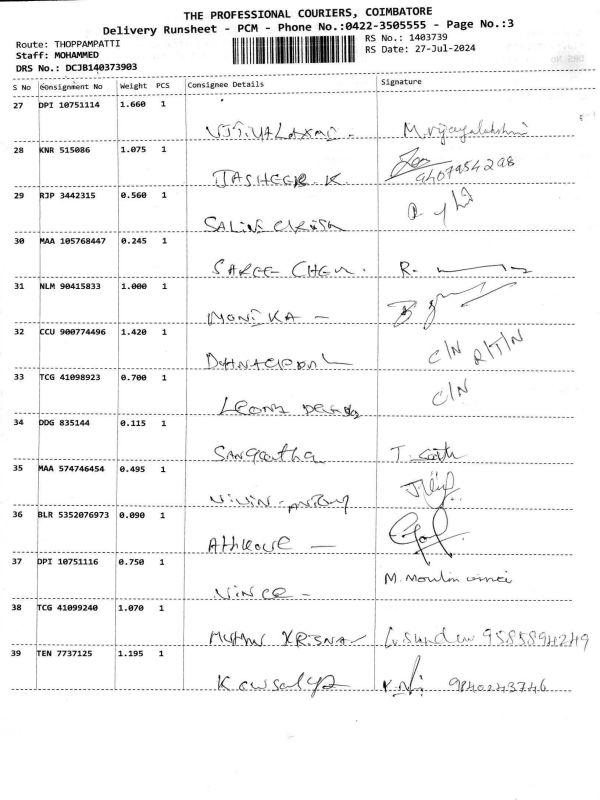 THE PROFESSIONAL COURIERS, COIMBATORE
Delivery Runsheet - PCM - Phone No.:0422-3505555 - Page No.:3
Route: THOPPAMPATTI
RS No.: 1403739
Staff: MOHAMMED
RS Date: 27-Jul-2024
DRS No.: DCJB140373903
S No Consignment No Weight PCS Consignee Details Signature
27 DPI 10751114 1.660 1
M. Vijayalakshmi
28 KNR 515086 1.075 1
JASHEER. K 9407954298
29 RJP 3442315 0.560 1
30 MAA 105768447 0.245 1
SAREE CHEN. R.
31 NLM 90415833 1.000 1
MONIKA -
32 CCU 900774496 1.420 1
C/N R/T/N
33 TCG 41098923 0.700 1
LEONS C/N
34 DDG 835144 0.115 1
SANGeetha T.
35 MAA 574746454 0.495 1
VIVIN - ANTONY
36 BLR 5352076973 0.090 1
37 DPI 10751116 0.750 1
VINCE - M. Moulin
38 TCG 41099240 1.070 1
MUTHU KRISNA 9585894249
39 TEN 7737125 1.195 1
Kowsalya 9840243746